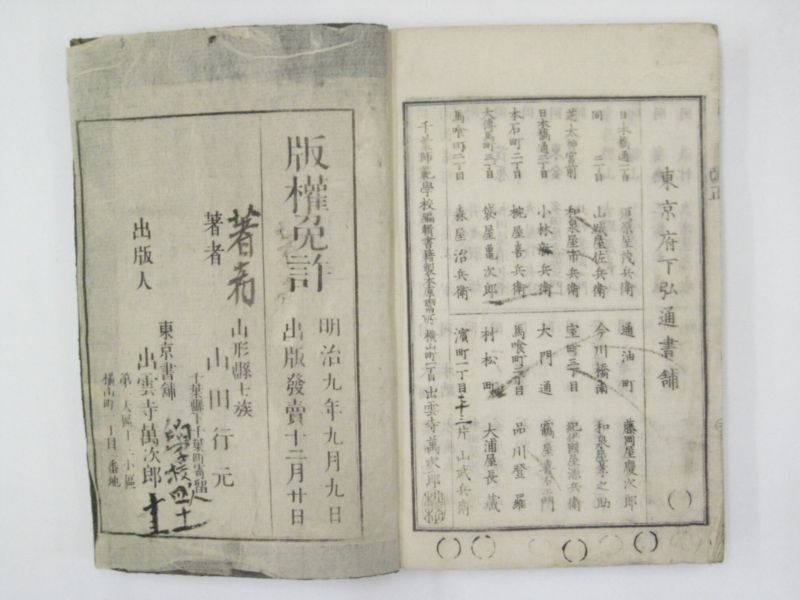 東京府下弘通書舗
日本橋通一丁目 須原屋茂兵衛
同 二丁目 山城屋佐兵衛
芝太神宮前 和泉屋市兵衛
日本橋通二丁目 小林新兵衛
本石町二丁目 椀屋喜兵衛
大傳馬町三丁目 袋屋亀次郎
馬喰町二丁目 森屋治兵衛
通油町 藤岡屋慶次郎
今川橋南 和泉屋善之助
室町三丁目 紀伊國屋源兵衛
大門通
馬喰町三丁目 品川登羅
村松町 大浦屋長藏
濱町二丁目 片山武兵衛
千葉師範學校編輯書籍製本 横山町三丁目 出雲寺萬次郎
版權免許
明治九年九月九日
出版發賣十二月廿日
著者
著者
山形縣士族
山田行元
千葉縣下千葉町寄留
出版人
東京書舗
出雲寺萬次郎
第一大區十二小區
横山町三丁目二番地
學校